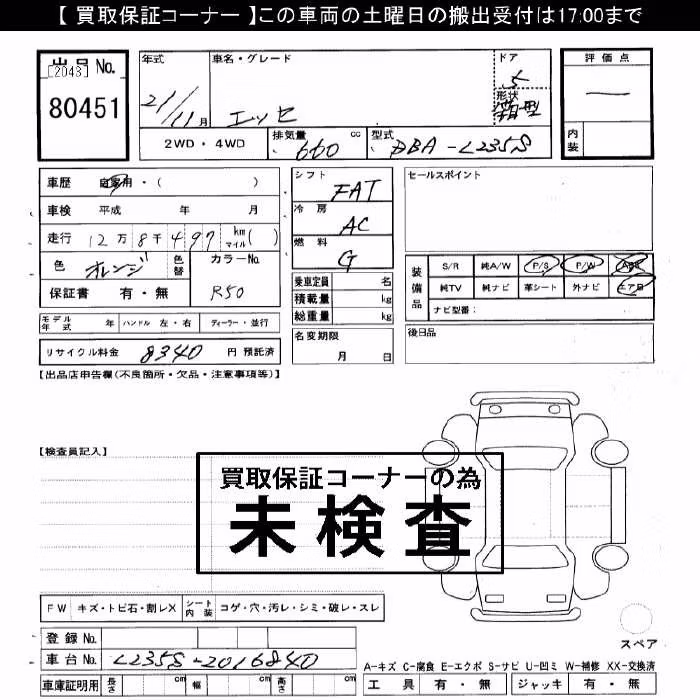 【 買取保証コーナー 】この車両の土曜日の搬出受付は17:00まで
出品 No.
[2043]
80451
年式
21/11月
車名・グレード
エッセ
ドア
5
形状
箱型
評価点
内装
2WD・4WD
排気量 660 cc
型式 DBA-L235S
車歴 自家用・( )
車検 平成 年 月
走行 12万8千497 km マイル ( )
色 オレンジ 色替
カラーNo. R50
保証書 有・無
シフト FAT
冷房 AC
燃料 G
乗車定員 名
積載量 kg
総重量 kg
名変期限 月 日
セールスポイント
装備品
S/R 純A/W P/S P/W ABS
純TV 純ナビ 革シート 外ナビ エアB
ナビ型番:
後日品
モデル年式 年 ハンドル 左・右 ディーラー・並行
リサイクル料金 8340 円 預託済
【出品店申告欄(不良箇所・欠品・注意事項等)】
【検査員記入】
買取保証コーナーの為
未検査
FW キズ・トビ石・割レX シート内装 コゲ・穴・汚レ・シミ・破レ・スレ
登録 No.
車台 No. L235S-2016840
車庫証明用 長さ cm 幅 cm 高さ cm
スペア
A-キズ C-腐食 E-エクボ S-サビ U-凹ミ W-補修 XX-交換済
工具 有・無 ジャッキ 有・無